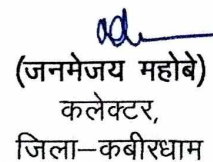 (जनमेजय महोबे)
कलेक्टर,
जिला–कबीरधाम